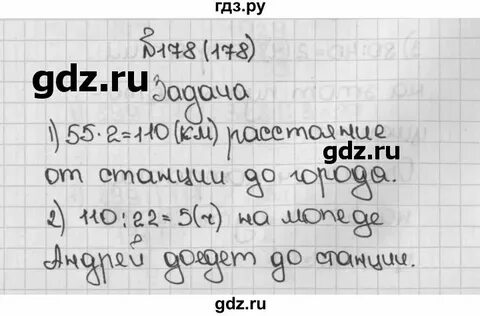 гдз.ру
№178(178)
Задача
1) 55·2=110(км) расстояние
от станции до города.
2) 110:22=5(ч) на мопеде
Андрей доедет до станции.
gdz.ru
gdz.ru
gdz.ru
gdz.ru
gdz.ru